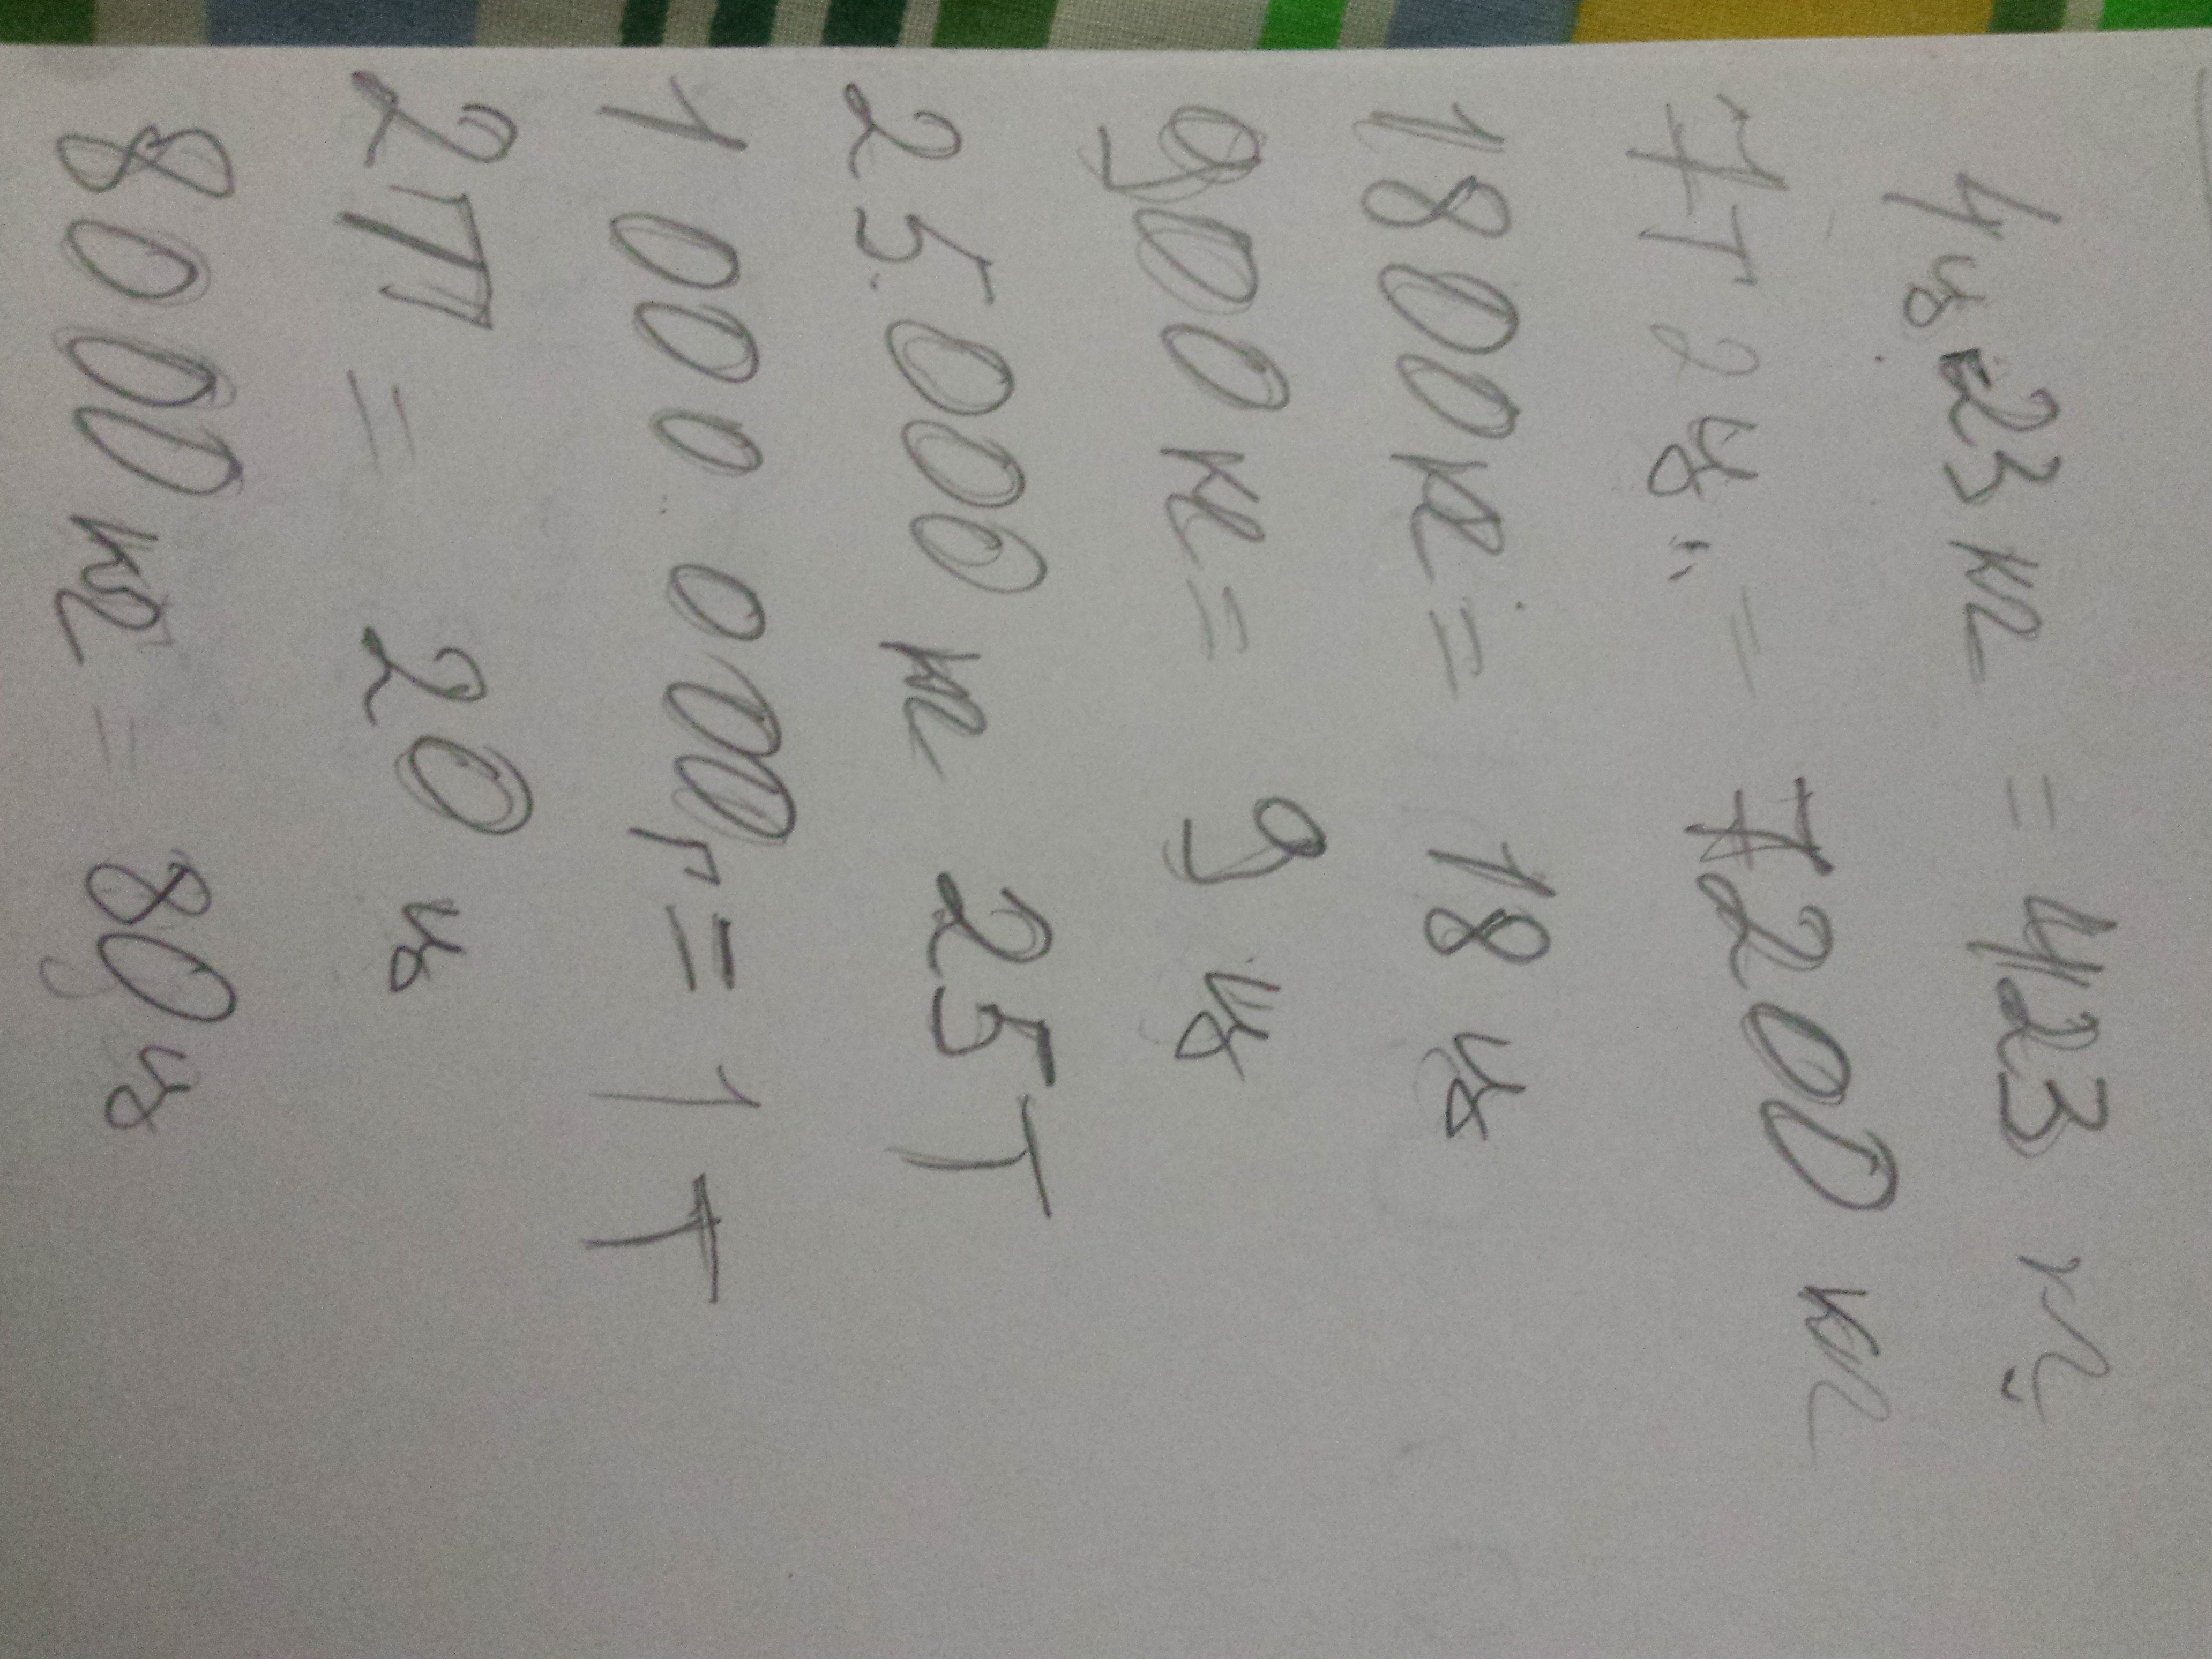 4ц 23 кг = 423 кг
7т 2ц = 7200 кг
1800кг = 18 ц
900кг = 9 ц
25.000 кг 25т
1 000 000г = 1 т
2т = 20 ц
8000кг = 80ц